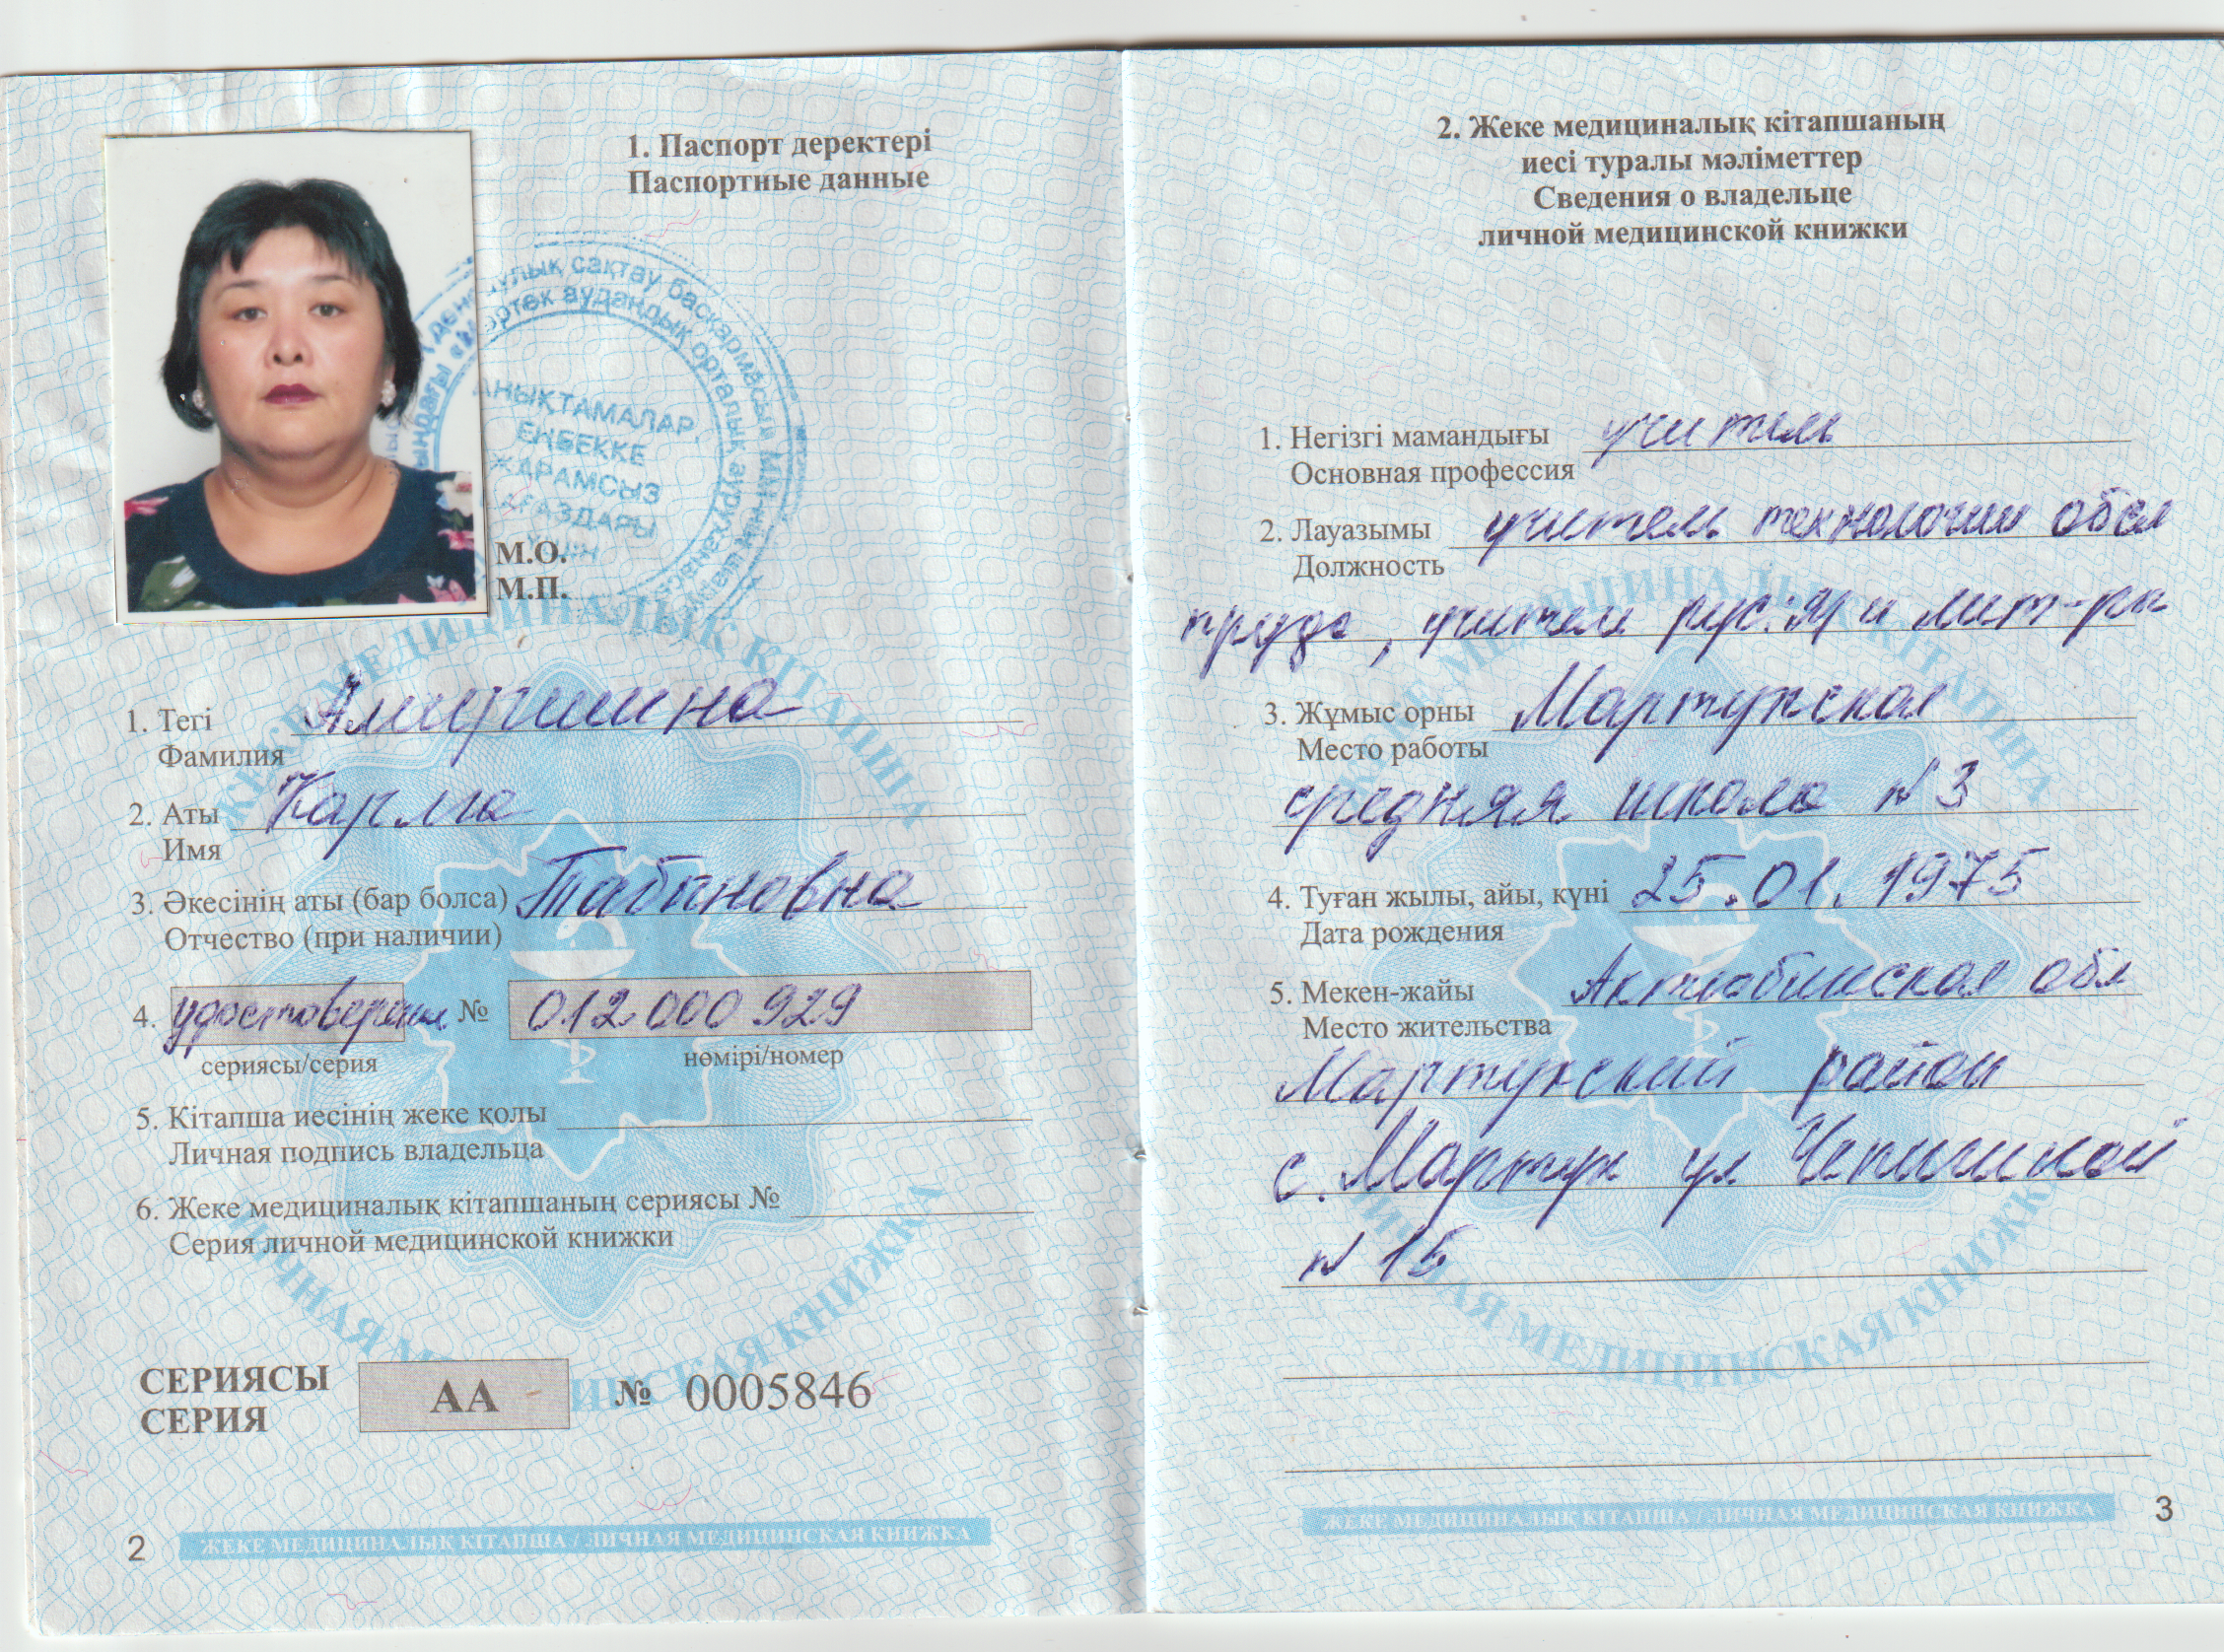 1. Паспорт деректері
Паспортные данные
АНЫҚТАМАЛАР,
ЕҢБЕККЕ
ЖАРАМСЫЗ
М.О.
М.П.
ЖЕКЕ МЕДИЦИНАЛЫҚ КІТАПША
1. Тегі
Фамилия
2. Аты Карма
Имя
3. Әкесінің аты (бар болса) Табановна
Отчество (при наличии)
4. удостоверение № 012000929
сериясы/серия нөмірі/номер
5. Кітапша иесінің жеке қолы
Личная подпись владельца
6. Жеке медициналық кітапшаның сериясы №
Серия личной медицинской книжки
ЛИЧНАЯ МЕДИЦИНСКАЯ КНИЖКА
СЕРИЯСЫ
СЕРИЯ
АА № 0005846
2 ЖЕКЕ МЕДИЦИНАЛЫҚ КІТАПША / ЛИЧНАЯ МЕДИЦИНСКАЯ КНИЖКА
2. Жеке медициналық кітапшаның
иесі туралы мәліметтер
Сведения о владельце
личной медицинской книжки
1. Негізгі мамандығы учитель
Основная профессия
2. Лауазымы учитель технологии обсл
Должность
труда, учитель рус.яз и лит-ры
ЖЕКЕ МЕДИЦИНАЛЫҚ КІТАПША
3. Жұмыс орны Мартукская
Место работы
средняя школа №3
4. Туған жылы, айы, күні 25.01.1975
Дата рождения
5. Мекен-жайы Актюбинская обл
Место жительства
Мартукский район
с. Мартук ул
№ 15
ЛИЧНАЯ МЕДИЦИНСКАЯ КНИЖКА
ЖЕКЕ МЕДИЦИНАЛЫҚ КІТАПША / ЛИЧНАЯ МЕДИЦИНСКАЯ КНИЖКА 3